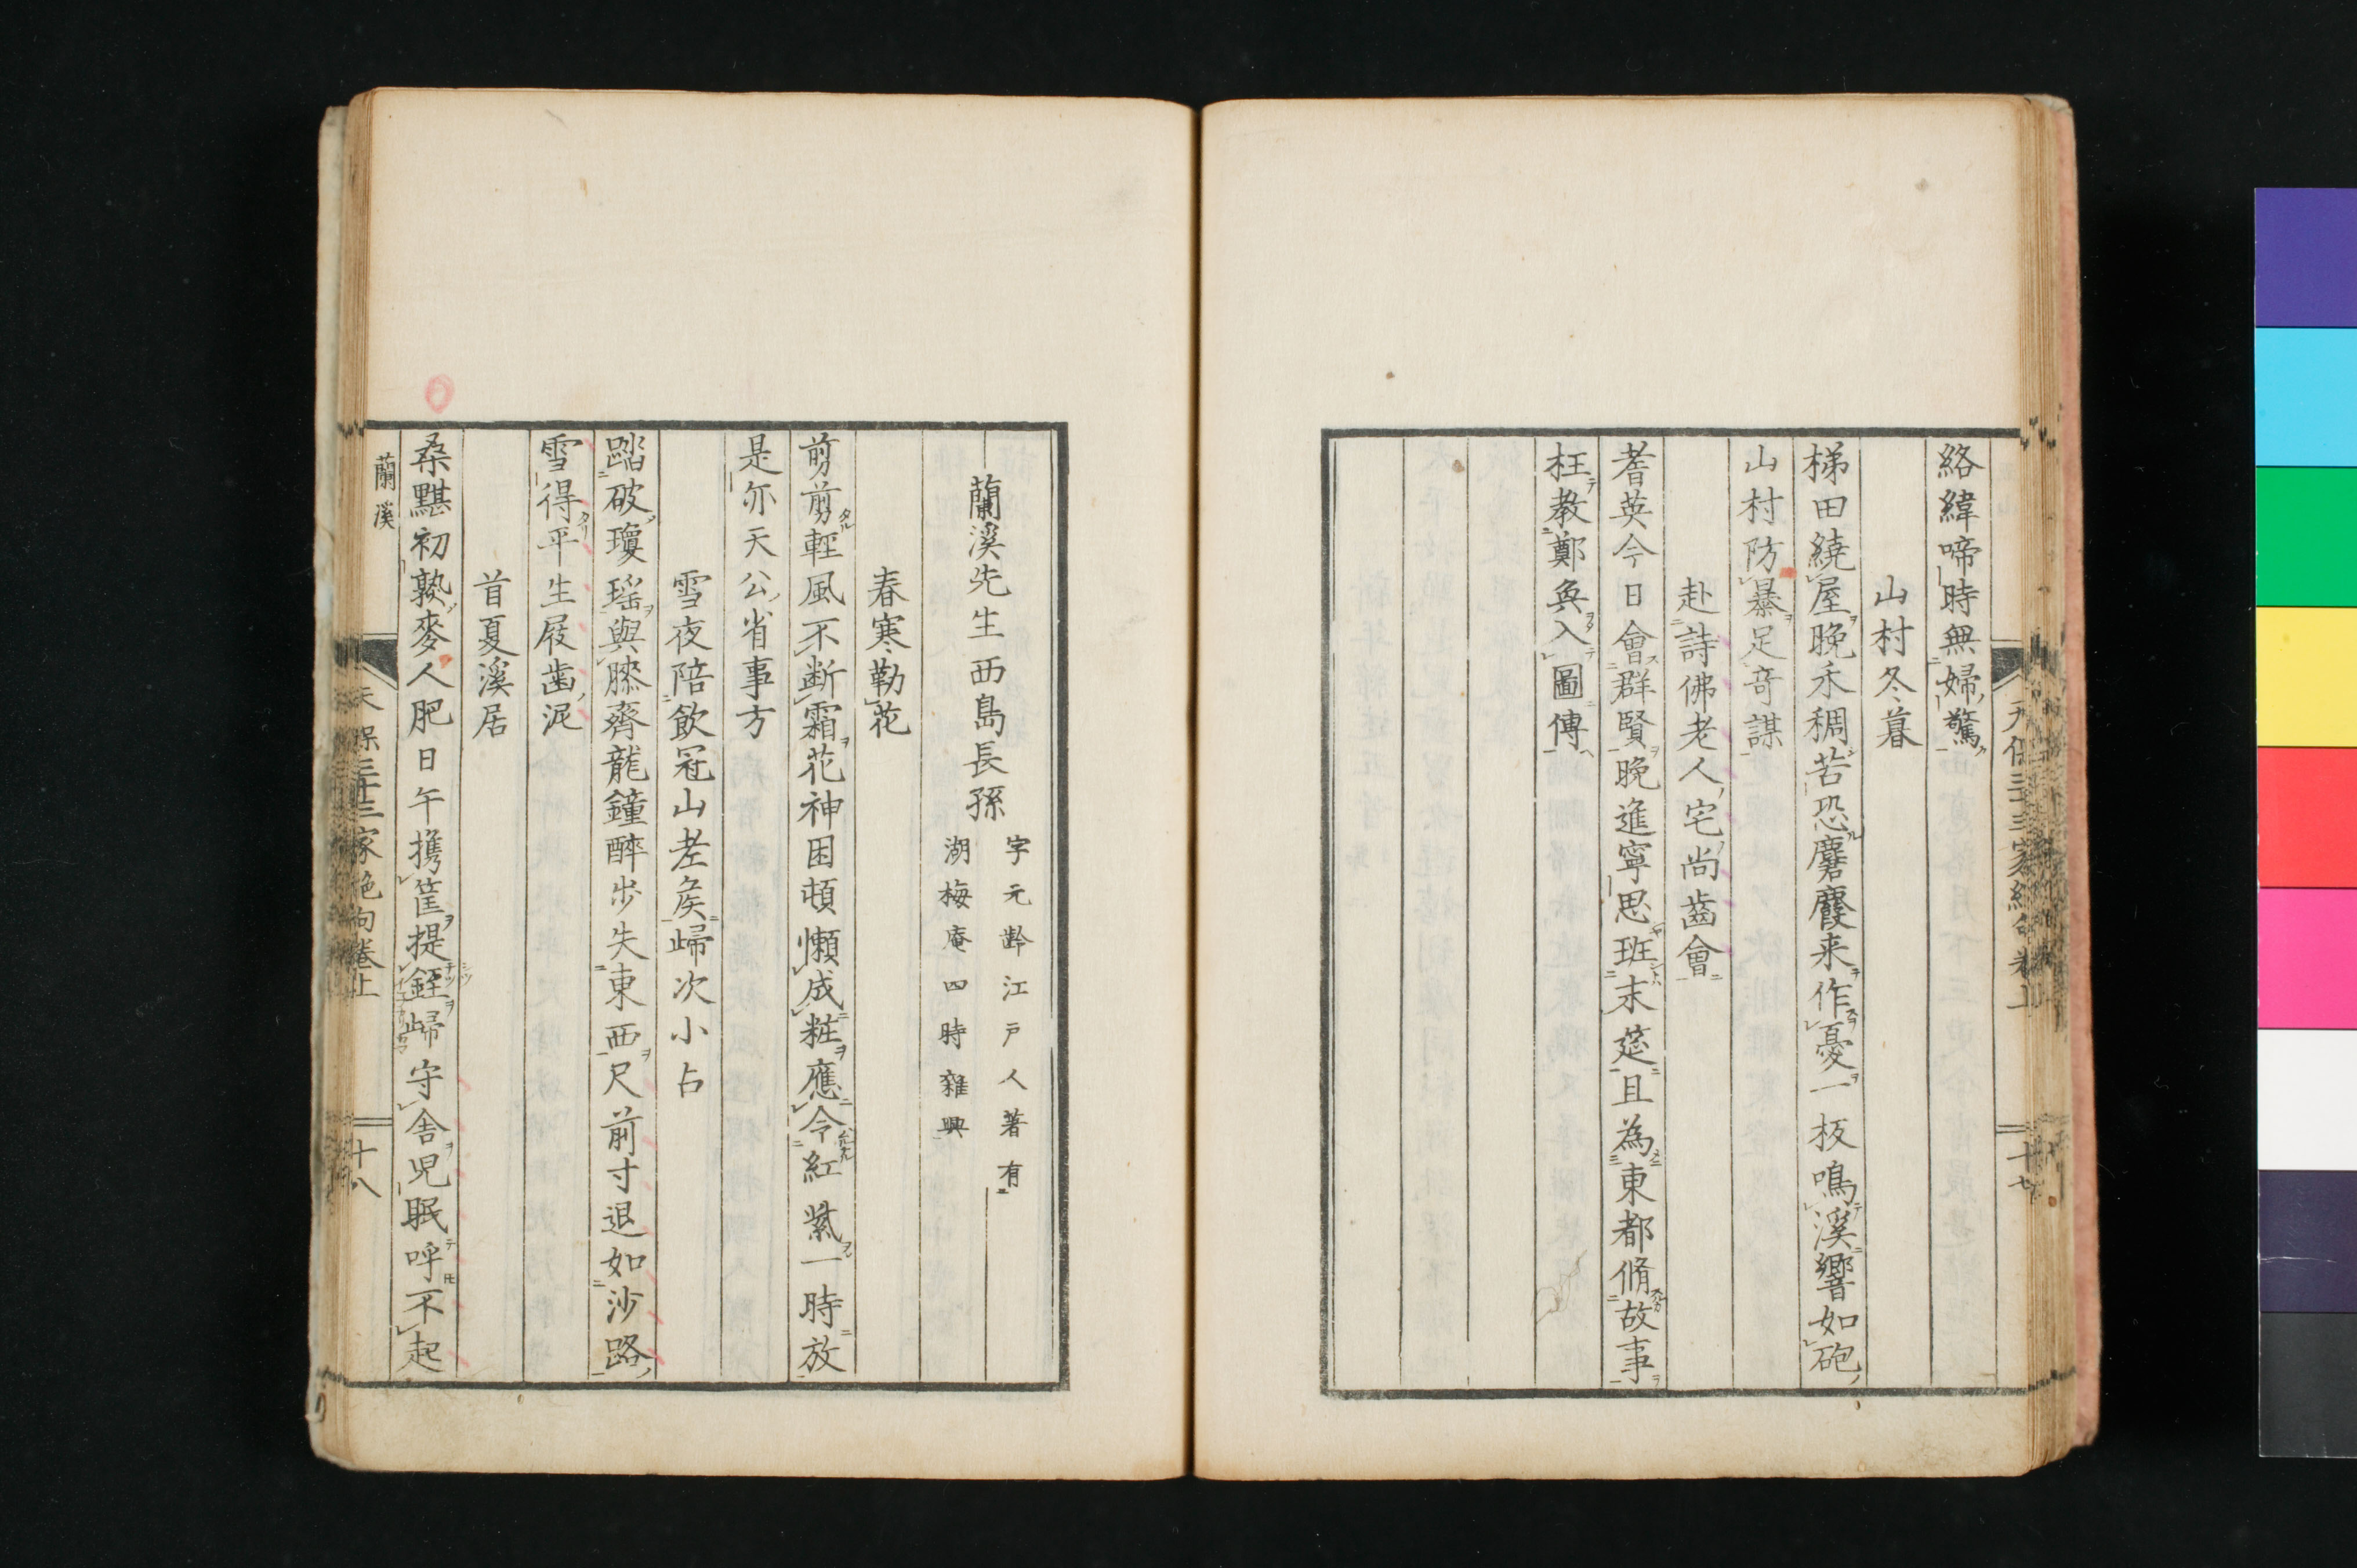 絡緯啼時無婦驚
山村冬暮
梯田繞屋晩禾稠苦恐麕麚来作憂一板鳴溪響如砲
山村防暴足奇謀
赴詩佛老人宅尚齒會
耆英今日會群賢晩進寧思班末筵且為東都脩故事
枉教鄭奐入圖傳
十七
蘭溪先生西島長孫
字元齡江戸人著有
湖梅庵四時雜興
春寒勒花
剪剪輕風不断霜花神困頓懶成粧應令紅紫一時放
是亦天公省事方
雪夜陪飲冠山老矦歸次小占
蹈破瓊瑶與膝齊龍鐘醉步失東西尺前寸退如沙路
雪得平生屐歯泥
首夏溪居
桑黮初熟麥人肥日午携筐提銍歸守舎児眠呼不起
蘭溪
天保三十三家絶句巻上
十八